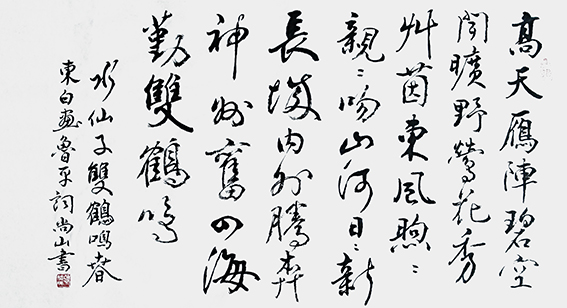 高天雁陣碧空
聞曠野鶯花秀
艸茵東風煦〻
親〻吻山河日〻新
長城内外騰奔
神州奮四海
勤雙鶴鳴
水仙子雙鶴鳴春
東白畫魯平詞尚山書